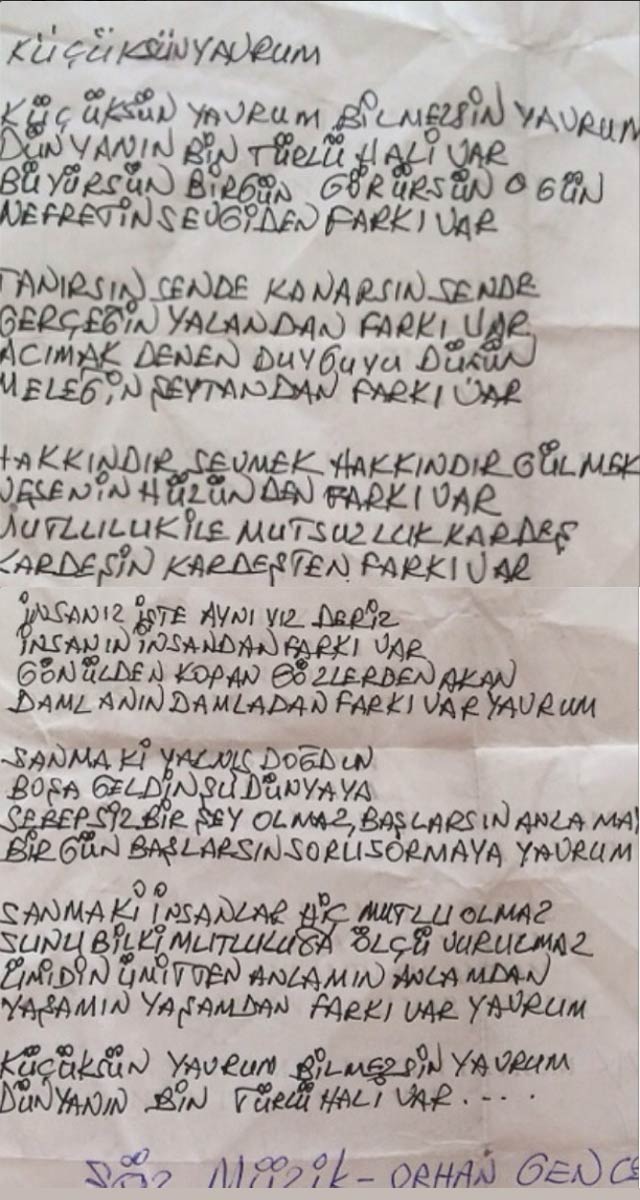 KÜÇÜKSÜN YAVRUM
KÜÇÜKSÜN YAVRUM BİLMEZSİN YAVRUM
DÜNYANIN BİN TÜRLÜ HALİ VAR
BÜYÜRSÜN BİRGÜN GÖRÜRSÜN O GÜN
NEFRETİN SEVGİDEN FARKI VAR
TANIRSIN SENDE KANARSIN SENDE
GERÇEĞİN YALANDAN FARKI VAR
ACIMAK DENEN DUYGUYU DÜŞÜN
MELEĞİN ŞEYTANDAN FARKI VAR
HAKKINDIR SEVMEK HAKKINDIR GÜLMEK
NEŞENİN HÜZÜNDEN FARKI VAR
MUTLLULUK İLE MUTSUZLUK KARDEŞ
KARDEŞİN KARDEŞTEN FARKI VAR
İNSANIZ İŞTE AYNIYIZ DERİZ
İNSANIN İNSANDAN FARKI VAR
GÖNÜLDEN KOPAN GÖZLERDEN AKAN
DAMLANIN DAMLADAN FARKI VAR YAVRUM
SANMA Kİ YALNIŞ DOĞDUN
BOŞA GELDİN ŞU DÜNYAYA
SEBEPSİZ BİR ŞEY OLMAZ, BAŞLARSIN ANLAMAY
BİR GÜN BAŞLARSIN SORU SORMAYA YAVRUM
SANMA Kİ İNSANLAR HİÇ MUTLU OLMAZ
ŞUNU BİL Kİ MUTLULUĞA ÖLÇÜ VURULMAZ
ÜMİDİN ÜMİTTEN ANLAMIN ANLAMDAN
YAŞAMIN YAŞAMDAN FARKI VAR YAVRUM
KÜÇÜKSÜN YAVRUM BİLMEZSİN YAVRUM
DÜNYANIN BİN TÜRLÜ HALİ VAR....
SÖZ MÜZİK - ORHAN GENCE